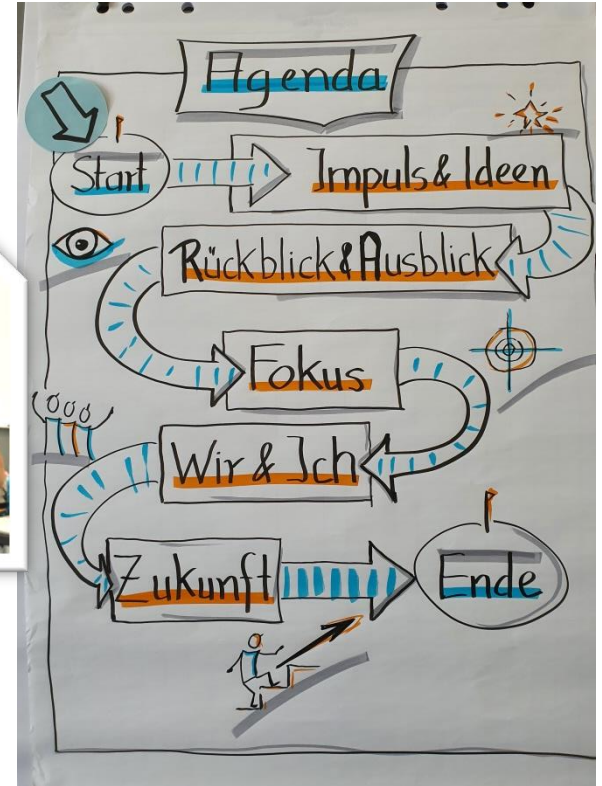 Agenda
Start
Impuls & Ideen
Rückblick & Ausblick
Fokus
Wir & Ich
Zukunft
Ende